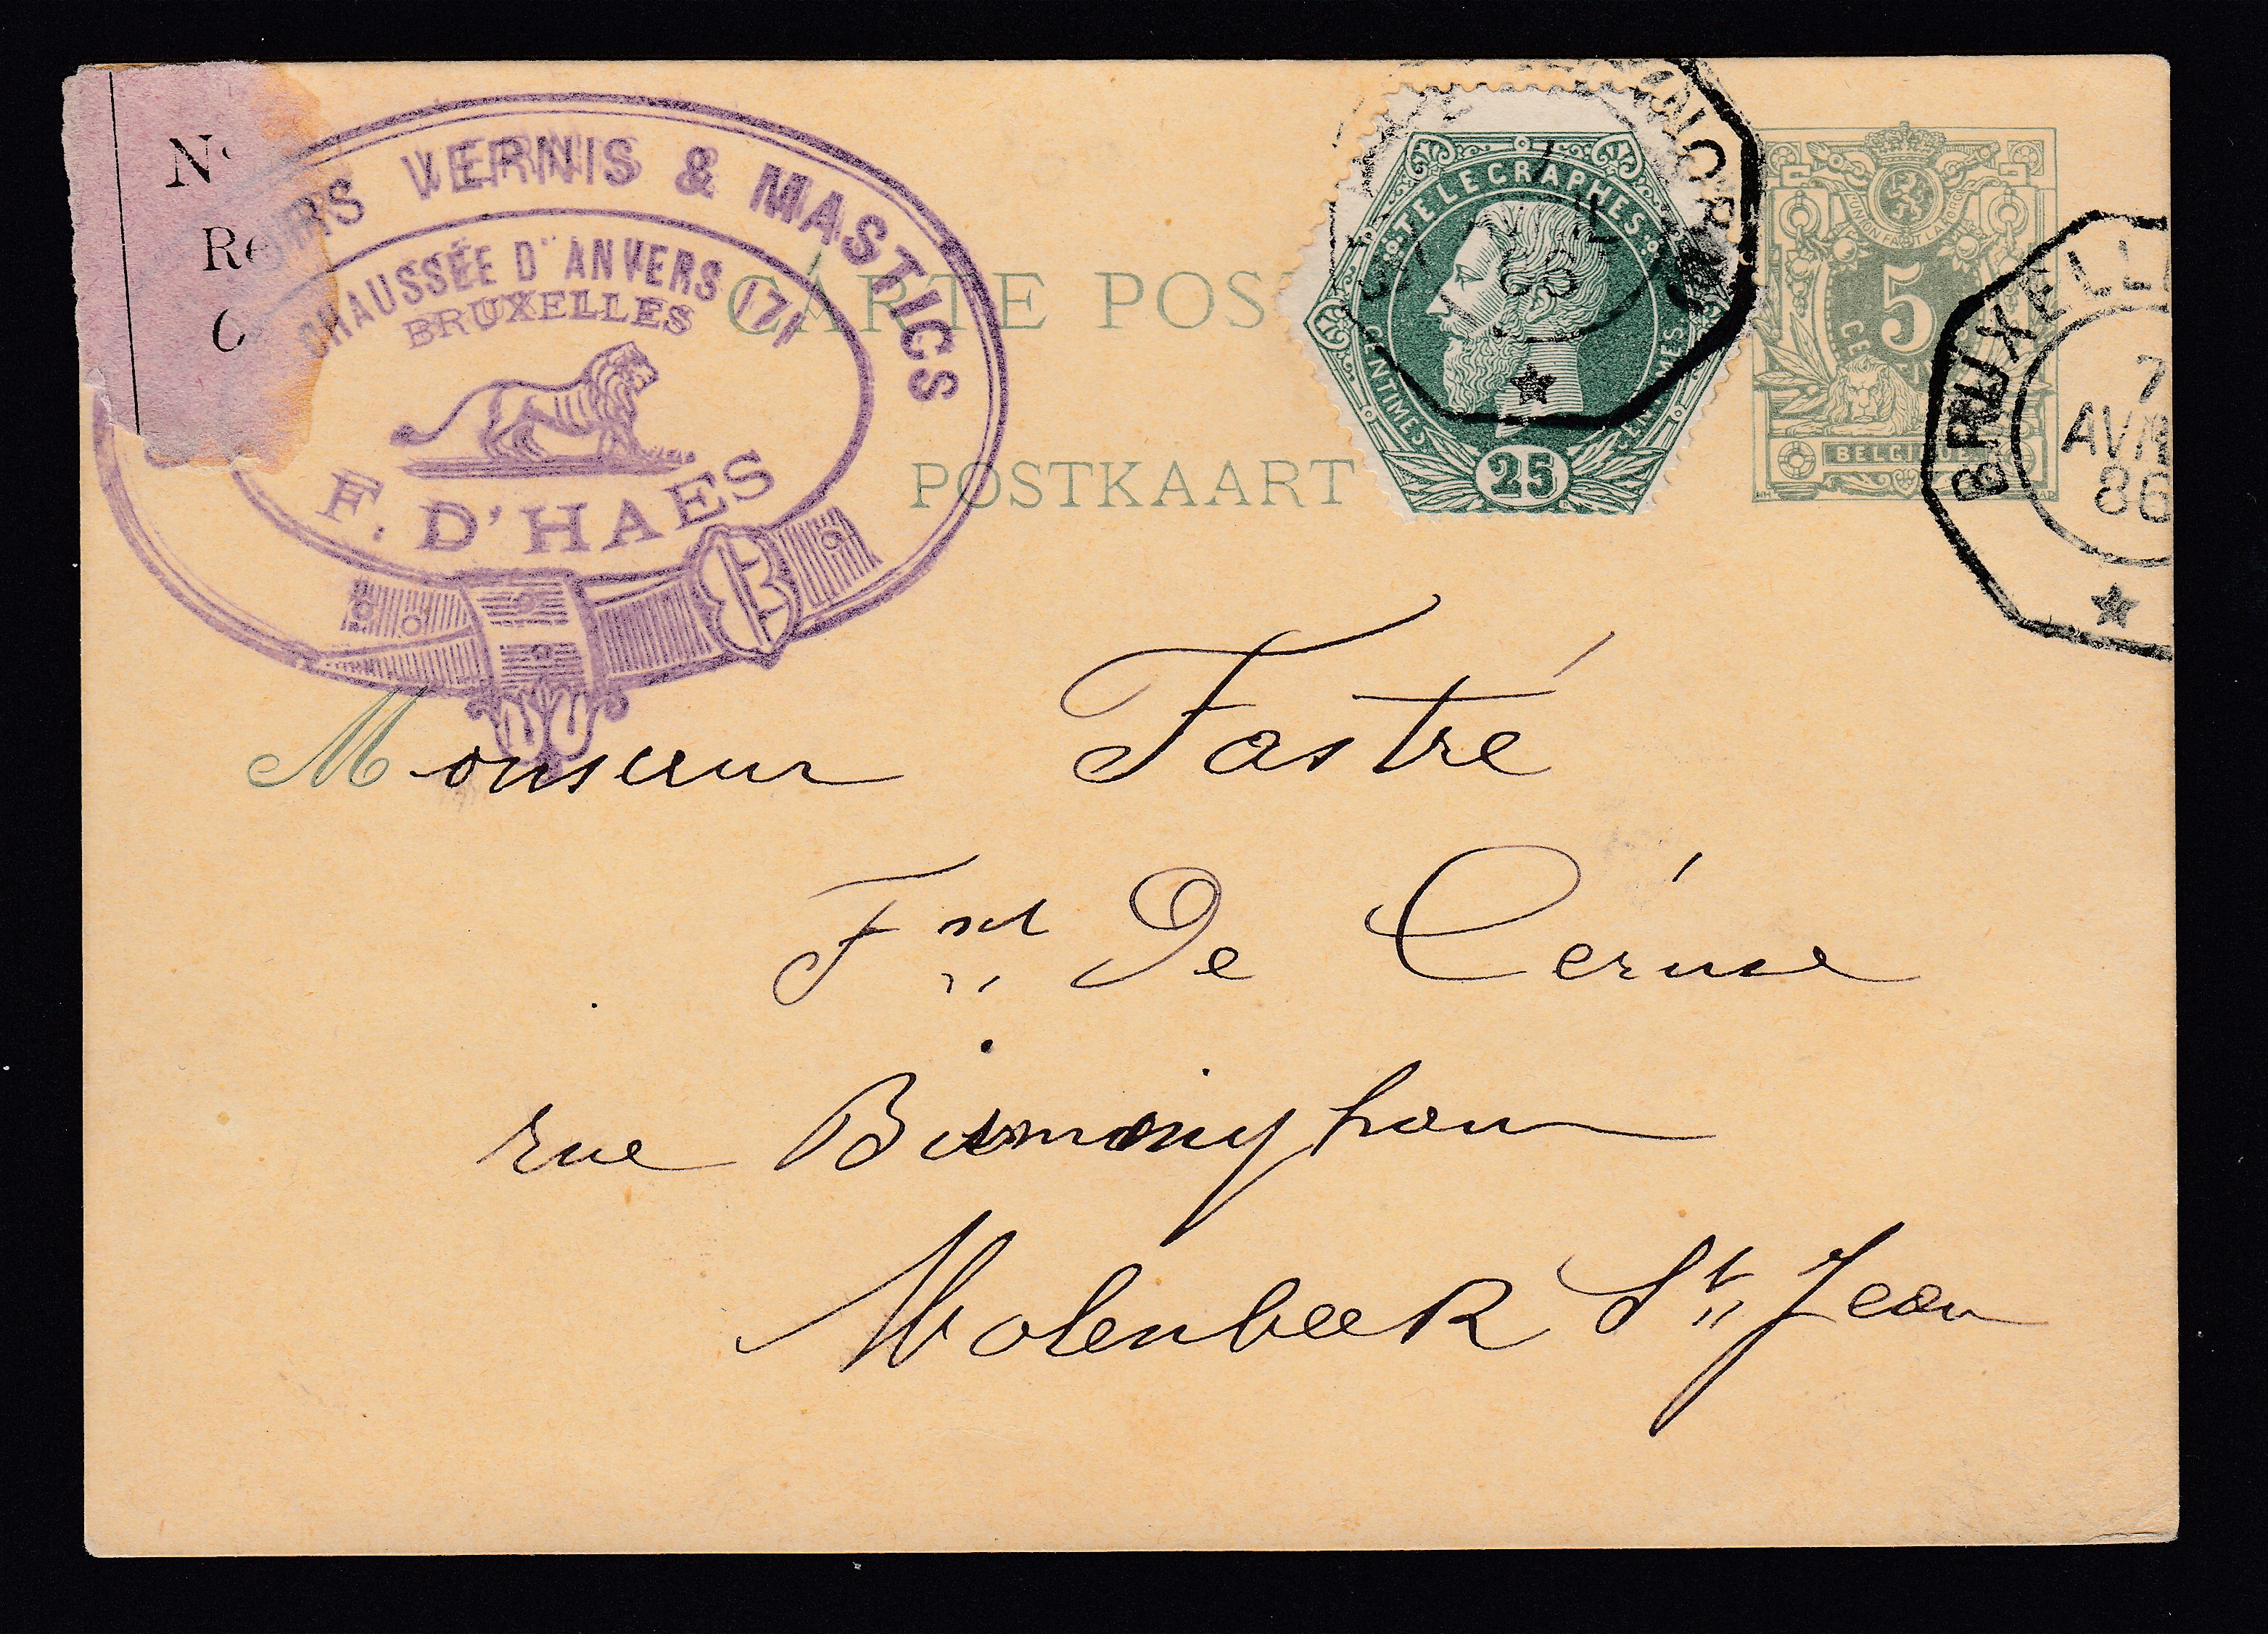 N
Re
C
VERNIS & MASTICS
CHAUSSÉE D'ANVERS 171
BRUXELLES
F. D'HAES
CARTE POS
POSTKAART
TELEGRAPHES
CENTIMES
25
UNION FAIT LA FORCE
5
CE
BELGIQUE
BRUXELL
7
AVR
86
Monsieur Fastré
Fnt De Céruse
rue Birmingham
Molenbeek St Jean